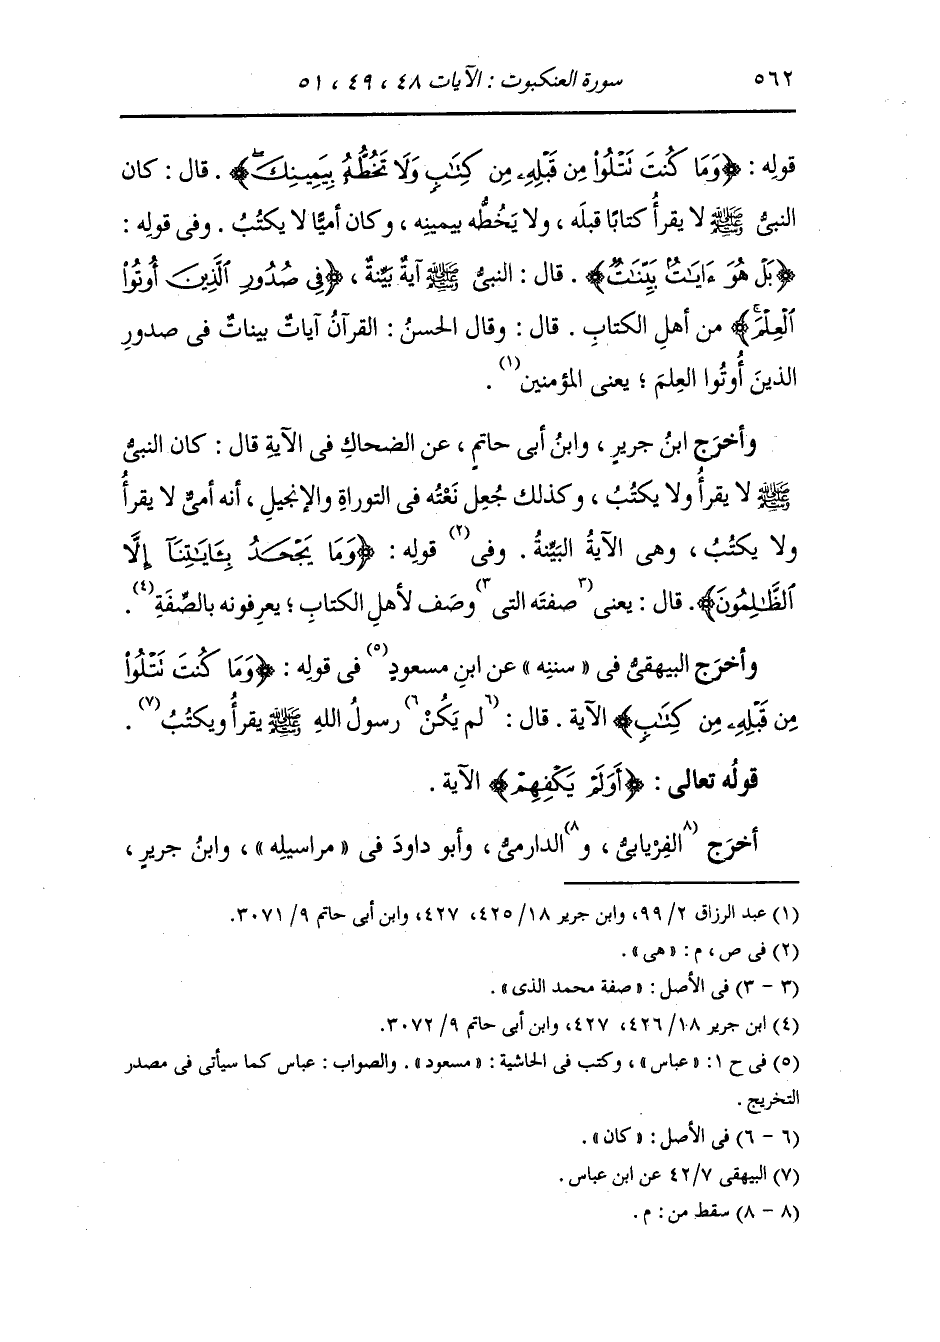 ٥٦٢ سورة العنكبوت : الآيات ٤٨ ، ٤٩ ، ٥١
قولِه : ﴿وَمَا كُنتَ نَتْلُواْ مِن قَبْلِهِۦ مِن كِتَٰبٍ وَلَا تَخُطُّهُۥ بِيَمِينِكَ﴾ . قال : كان
النبىُّ ﷺ لا يقرأُ كتابًا قبلَه ، ولا يَخُطُّه بيمينِه ، وكان أميًّا لا يكتُبُ . وفى قولِه :
﴿بَلْ هُوَ ءَايَٰتٌۢ بَيِّنَٰتٌ﴾ . قال : النبىُّ ﷺ آيةٌ بيِّنةٌ ، ﴿فِى صُدُورِ ٱلَّذِينَ أُوتُواْ
ٱلْعِلْمَۚ﴾ من أهلِ الكتابِ . قال : وقال الحسنُ : القرآنُ آياتٌ بيناتٌ فى صدورِ
الذينَ أُوتُوا العِلمَ ؛ يعنى المؤمنين(١) .
وأخرَج ابنُ جريرٍ ، وابنُ أبى حاتمٍ ، عن الضحاكِ فى الآيةِ قال : كان النبىُّ
ﷺ لا يقرأُ ولا يكتُبُ ، وكذلك جُعِل نَعْتُه فى التوراةِ والإنجيلِ ، أنه أمىٌّ لا يقرأُ
ولا يكتُبُ ، وهى الآيةُ البَيِّنةُ . وفى(٢) قولِه : ﴿وَمَا يَجْحَدُ بِـَٔايَٰتِنَآ إِلَّا
ٱلظَّٰلِمُونَ﴾. قال : يعنى (٣صفتَه التى٣) وصَف لأهلِ الكتابِ ؛ يعرِفونه بالصِّفَةِ(٤) .
وأخرَج البيهقىُّ فى « سننِه » عن ابنِ مسعودٍ(٥) فى قولِه : ﴿وَمَا كُنتَ نَتْلُواْ
مِن قَبْلِهِۦ مِن كِتَٰبٍ﴾ الآية . قال : (٦لم يَكُنْ٦) رسولُ اللهِ ﷺ يقرأُ ويكتُبُ(٧) .
قولُه تعالى : ﴿أَوَلَمْ يَكْفِهِمْ﴾ الآية .
أخرَج (٨الفِرْيابىُّ ، و٨)الدارمىُّ ، وأبو داودَ فى « مراسيلِه » ، وابنُ جريرٍ ،
(١) عبد الرزاق ٢/ ٩٩، وابن جرير ١٨/ ٤٢٥، ٤٢٧، وابن أبى حاتم ٩/ ٣٠٧١.
(٢) فى ص ، م : « هى » .
(٣ – ٣) فى الأصل : « صفة محمد الذى » .
(٤) ابن جرير ١٨/ ٤٢٦، ٤٢٧، وابن أبى حاتم ٩/ ٣٠٧٢.
(٥) فى ح ١: « عباس » ، وكتب فى الحاشية : « مسعود » . والصواب : عباس كما سيأتى فى مصدر
التخريج .
(٦ – ٦) فى الأصل : « كان » .
(٧) البيهقى ٤٢/٧ عن ابن عباس .
(٨ – ٨) سقط من : م .